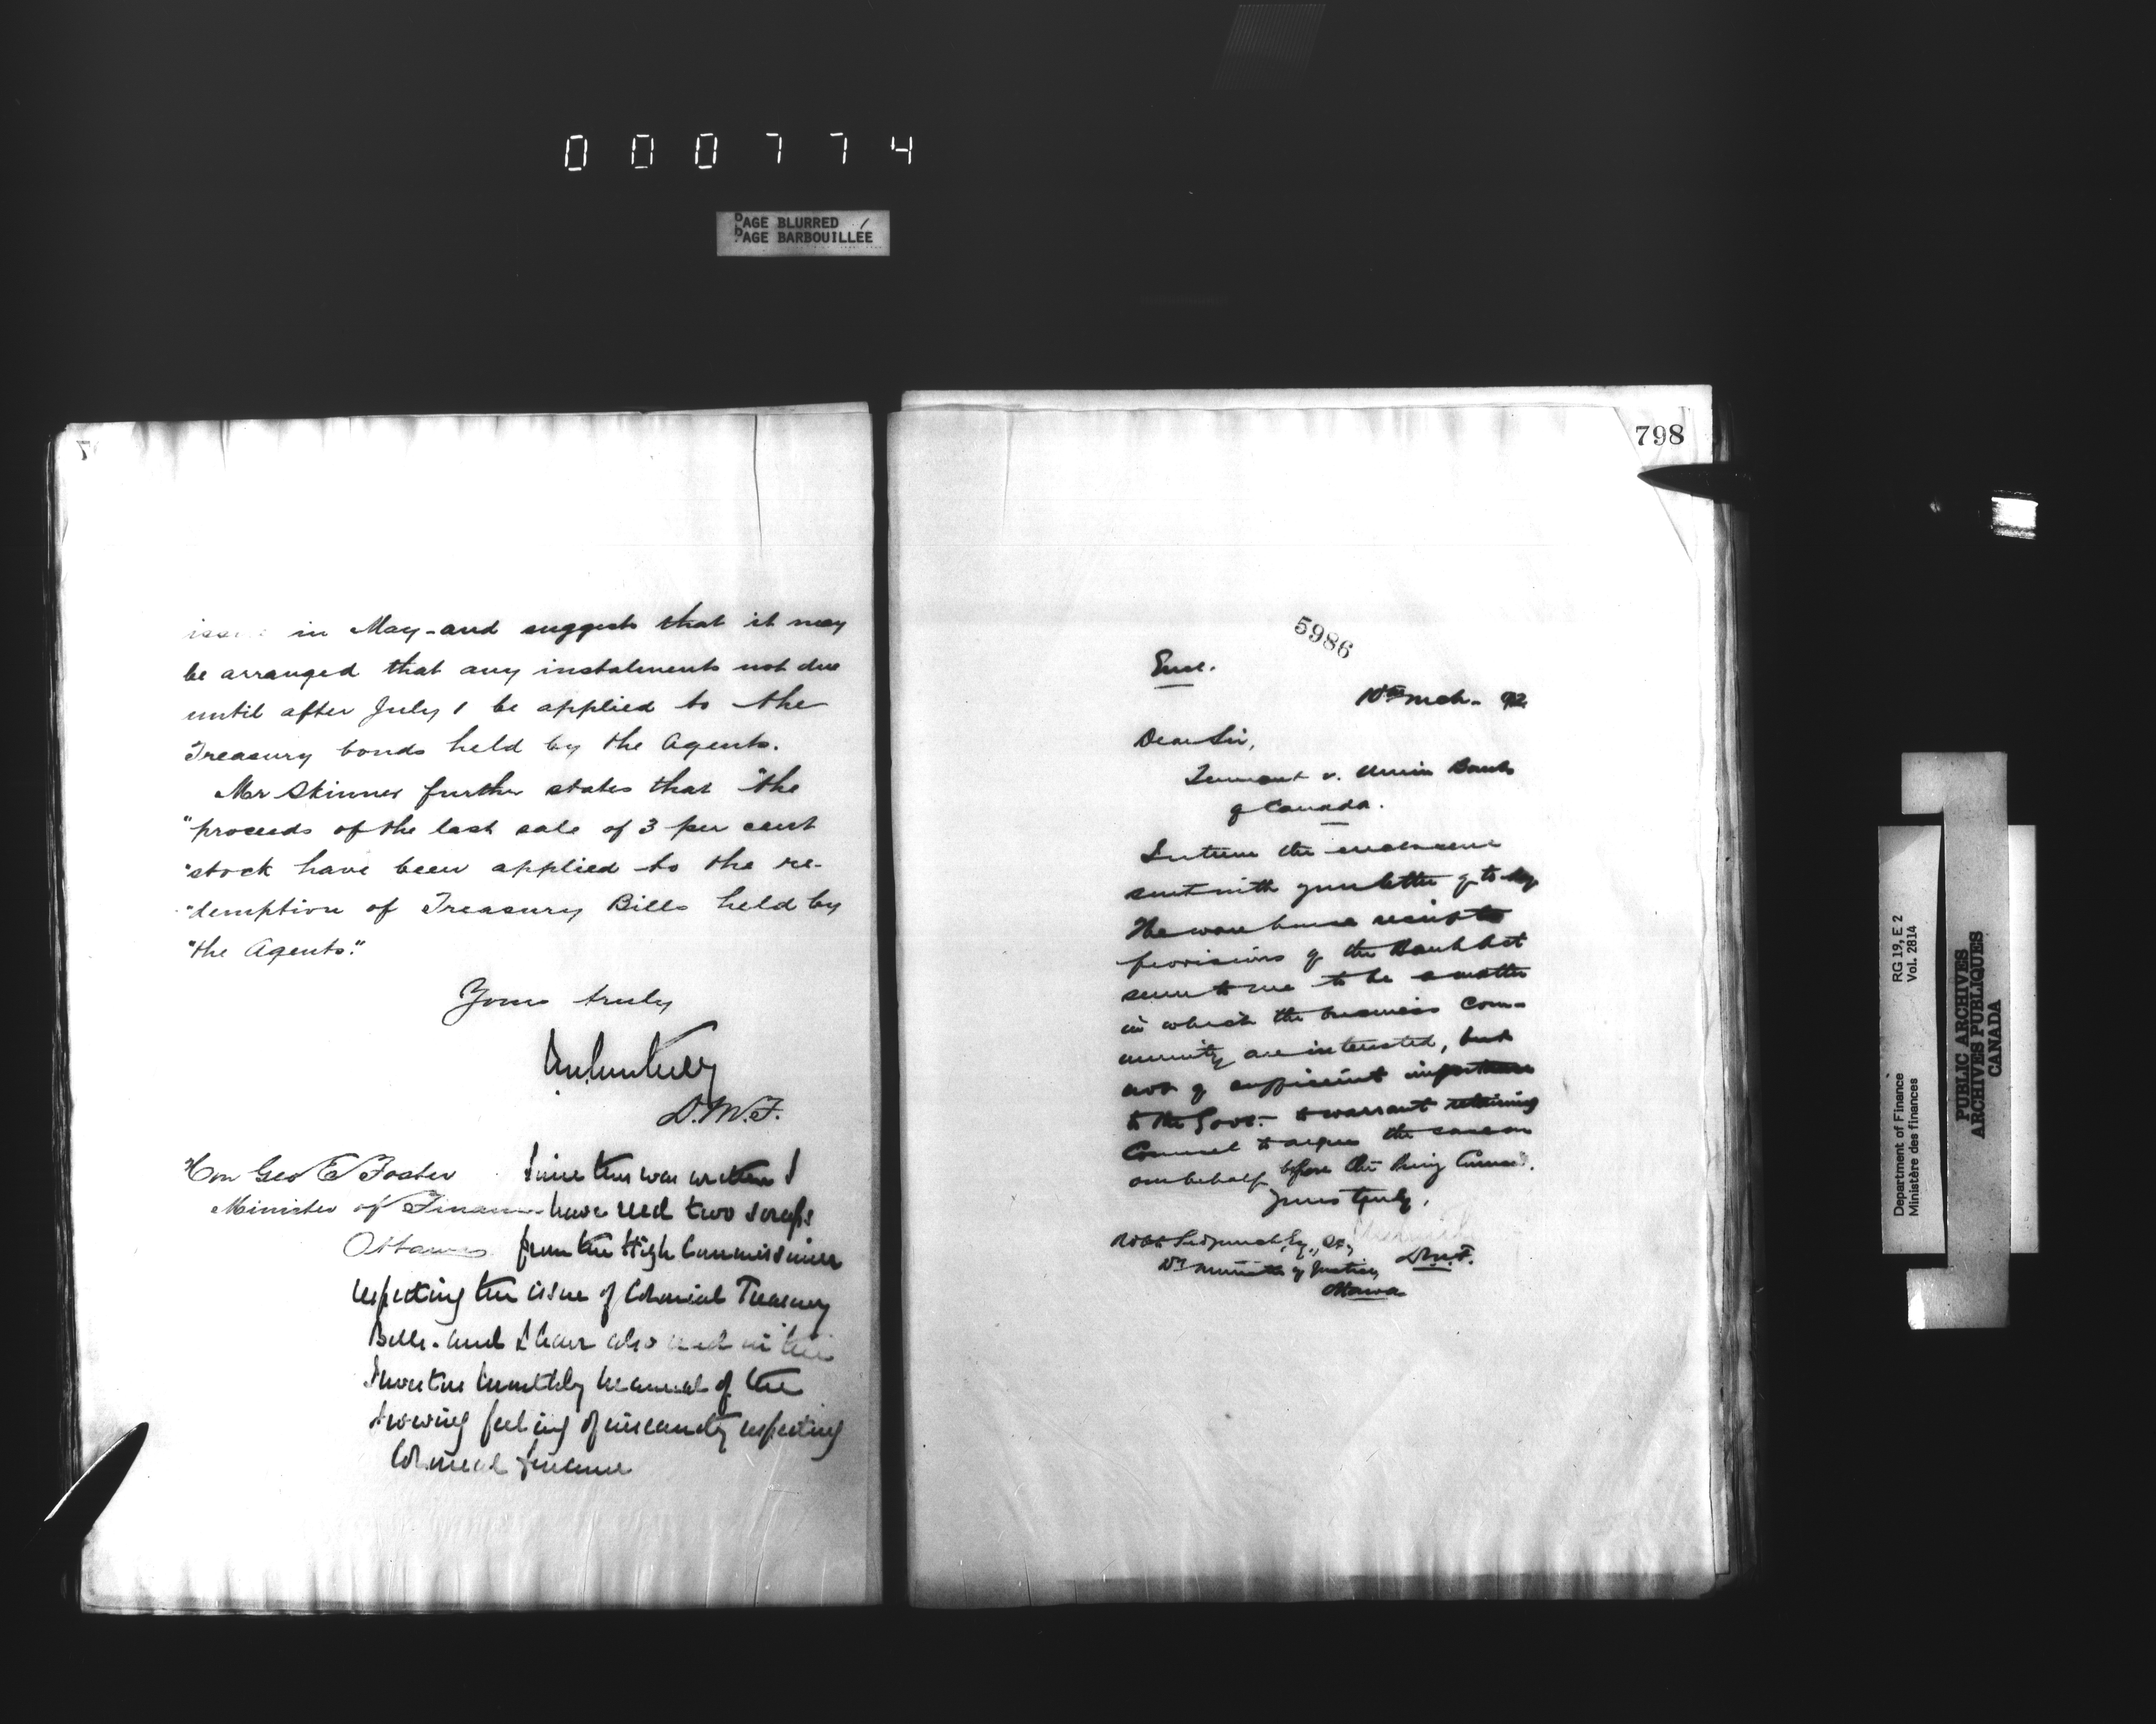 000774
PAGE BLURRED
PAGE BARBOUILLÉE
in May - and suggests that it may
be arranged that any instalments not due
until after July 1 be applied to the
Treasury bonds held by the Agents.
Mr Skinner further states that "the
"proceeds of the last sale of 3 per cent
"stock have been applied to the re-
"demption of Treasury Bills held by
"the Agents."
Yours truly
D.M.F.
Hon Geo E Foster
Minister of Finance
Ottawa
Since this was written I
have read two
from the High Commissioner
respecting the issue of Colonial Treasury
Bills. and I have also read in the
monthly manual of the
growing feeling of respecting
Colonial finance
798
5986
Encl.
10th Mch. 92
Dear Sir,
Tennant v. Union Bank
of Canada.
I return the enclosure
sent with your letter of
The warehouse receipts
provisions of the Bank Act
seem to me to be a matter
in which the business com-
munity are interested, but
not of sufficient importance
to the Govt. to warrant retaining
Counsel to argue the case on
our behalf before the Privy Council.
Yours truly,
D.M.F.
Robt Sedgewick, Esq., Q.C.,
Dy Minister of Justice,
Ottawa
Department of Finance
Ministère des finances
RG 19, E 2
Vol. 2814
PUBLIC ARCHIVES
ARCHIVES PUBLIQUES
CANADA